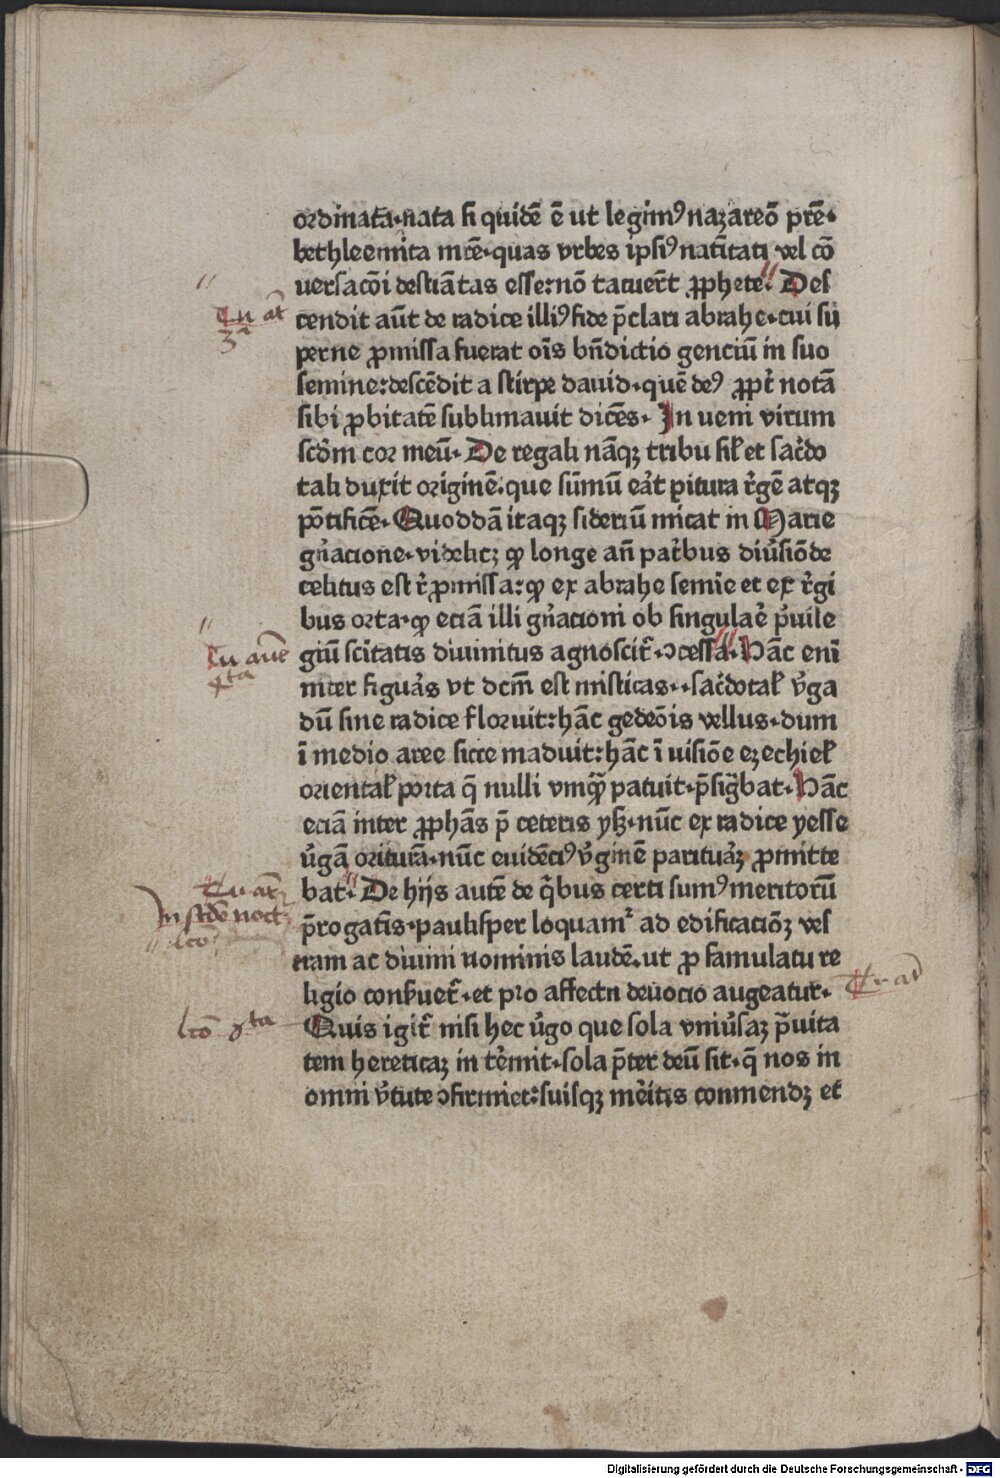 ordinata·nata si quidē ē ut legimꝰ nazareō prē·
bethleemita mrē·quas vrbes ipsiꝰ natītati vel cō
uersacōi destiātas esse:nō tacuer̄t ꝓphete. Des
Tu at̄
cendit aūt de radice illiꝰ fide p̄clari abrahe·cui su
3ᵃ
perne ꝓmissa fuerat oīs bn̄dictio genciū in suo
semine:descēdit a stirpe dauid·quē deꝰ ꝓpt̄ notā
sibi ꝓbitatē sublimauit dicēs· In ueni virum
scd̄m cor meū· De regali nāqꝫ tribu sil̄ et sac̄do
tali duxit originē·que sūmū eāt ꝑitura r̄gē atqꝫ
pōtificē· Quoddā itaqꝫ sideriū micat in Marie
gn̄acione·videlicꝫ ꝙ longe an̄ pat̄bus diūsiōde
celitus est r̄ꝓmissa:ꝙ ex abrahe semīe et ex r̄gi
bus orta·ꝙ eciā illi gn̄acioni ob singulaē p̄uile
Tu autē
giū scītatis diuinitus agnoscit̄·ꝯcessa· Hāc eni
4ᵗᵃ
inter figuās vt dcm̄ est misticas··sac̄dotal̄ v̄ga
dū sine radice floruit:hāc gedeōis vellus·dum
ī medio aree sicce maduit:hāc ī uisiōe ezechiel̄
oriental̄ porta q̄ nulli vmꝙ̄ patuit·p̄sig̃bat· Hāc
eciā inter ꝓphās p̄ ceteris ysꝫ·nūc ex radice yesse
ūgā orituā·nūc euidēciꝰ v̄ginē parituāꝫ ꝓmitte
Tu at̄
bat· De hijs autē de q̄bus certi sumꝰ meritorū
In scdō noct
p̄rogatīs·paulisper loquamᷣ ad edificaciōꝫ ves
lcō
tram ac diuini nominis laudē·ut ꝓ famulatu re
Tu at̄
ligio conseruet̄·et pro affectu deuocio augeatur·
lcō 4ᵗᵃ
Quis igit̄ nisi hec v̄go que sola vniūsaꝫ p̄uita
tem hereticaꝫ in tēmit·sola p̄ter deū sit·q̄ nos in
omni v̄tute ꝯfirmet:suisqꝫ mēitis conmendꝫ et
Digitalisierung gefördert durch die Deutsche Forschungsgemeinschaft - DFG